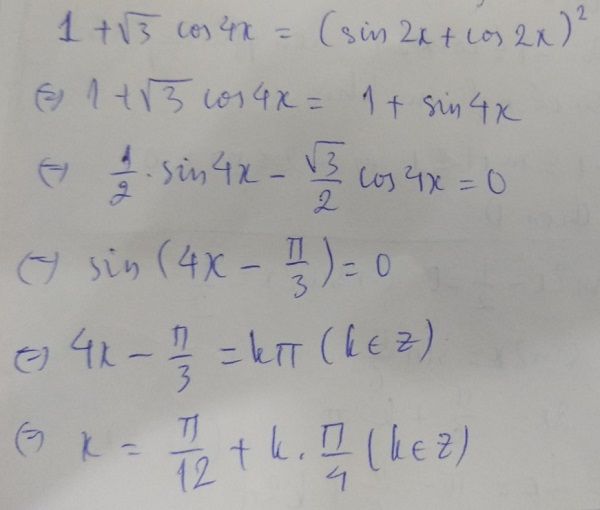 1 + √3 cos4x = (sin 2x + cos 2x)²
⇔ 1 + √3 cos4x = 1 + sin4x
⇔ 1/2 . sin4x - √3/2 cos4x = 0
⇔ sin (4x - π/3) = 0
⇔ 4x - π/3 = kπ (k ∈ z)
⇔ x = π/12 + k . π/4 (k ∈ z)